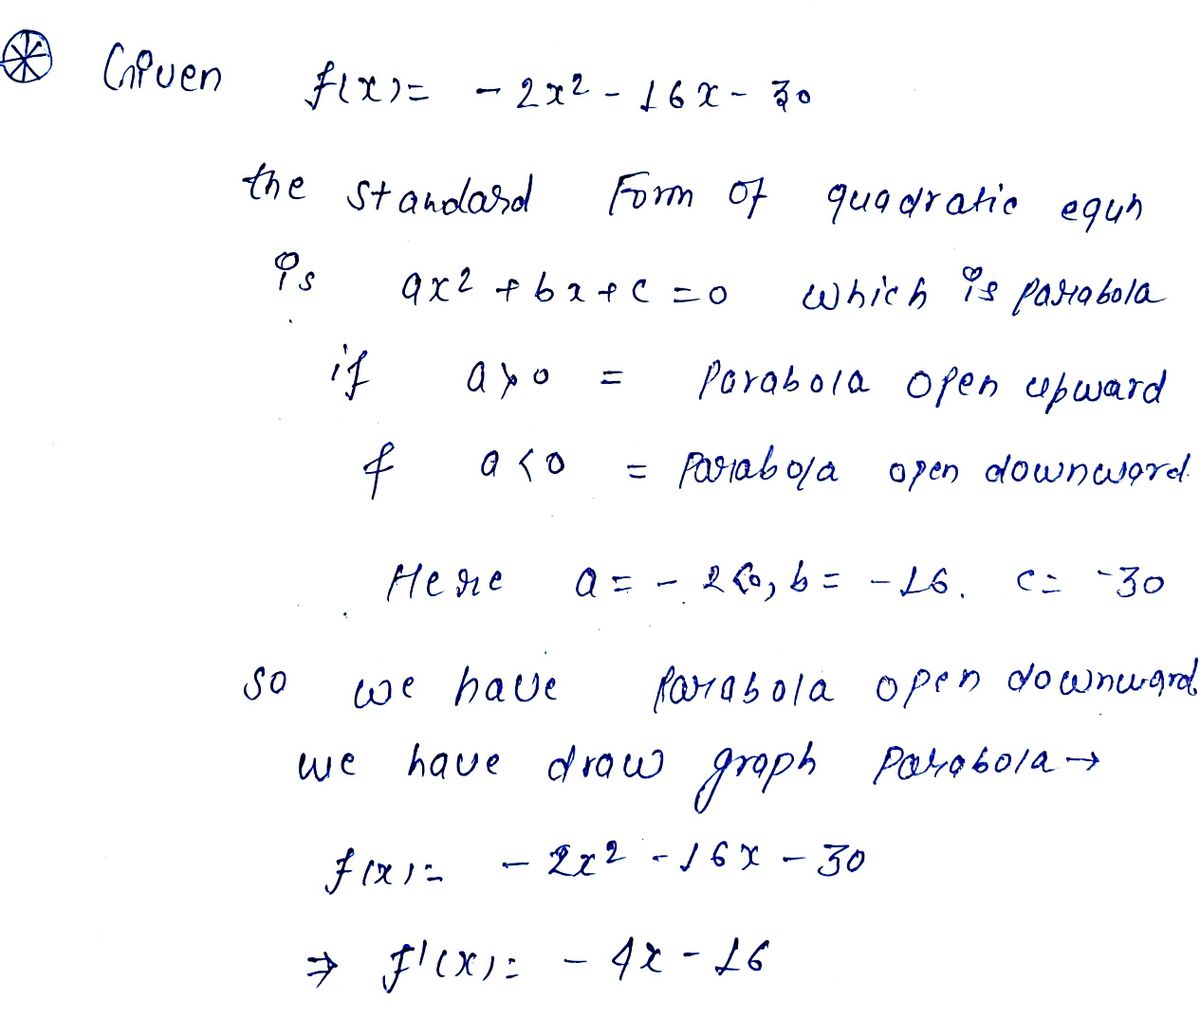 Given f(x) = - 2x² - 16x - 30
the standard Form of quadratic equn
is ax² + bx + c = 0 which is parabola
if a > 0 = Parabola open upward
f a < 0 = Parabola open downward.
Here a = - 2 < 0, b = - 16. c = - 30
so we have Parabola open downward
we have draw graph Parabola →
f(x) = - 2x² - 16x - 30
⇒ f'(x) = - 4x - 16